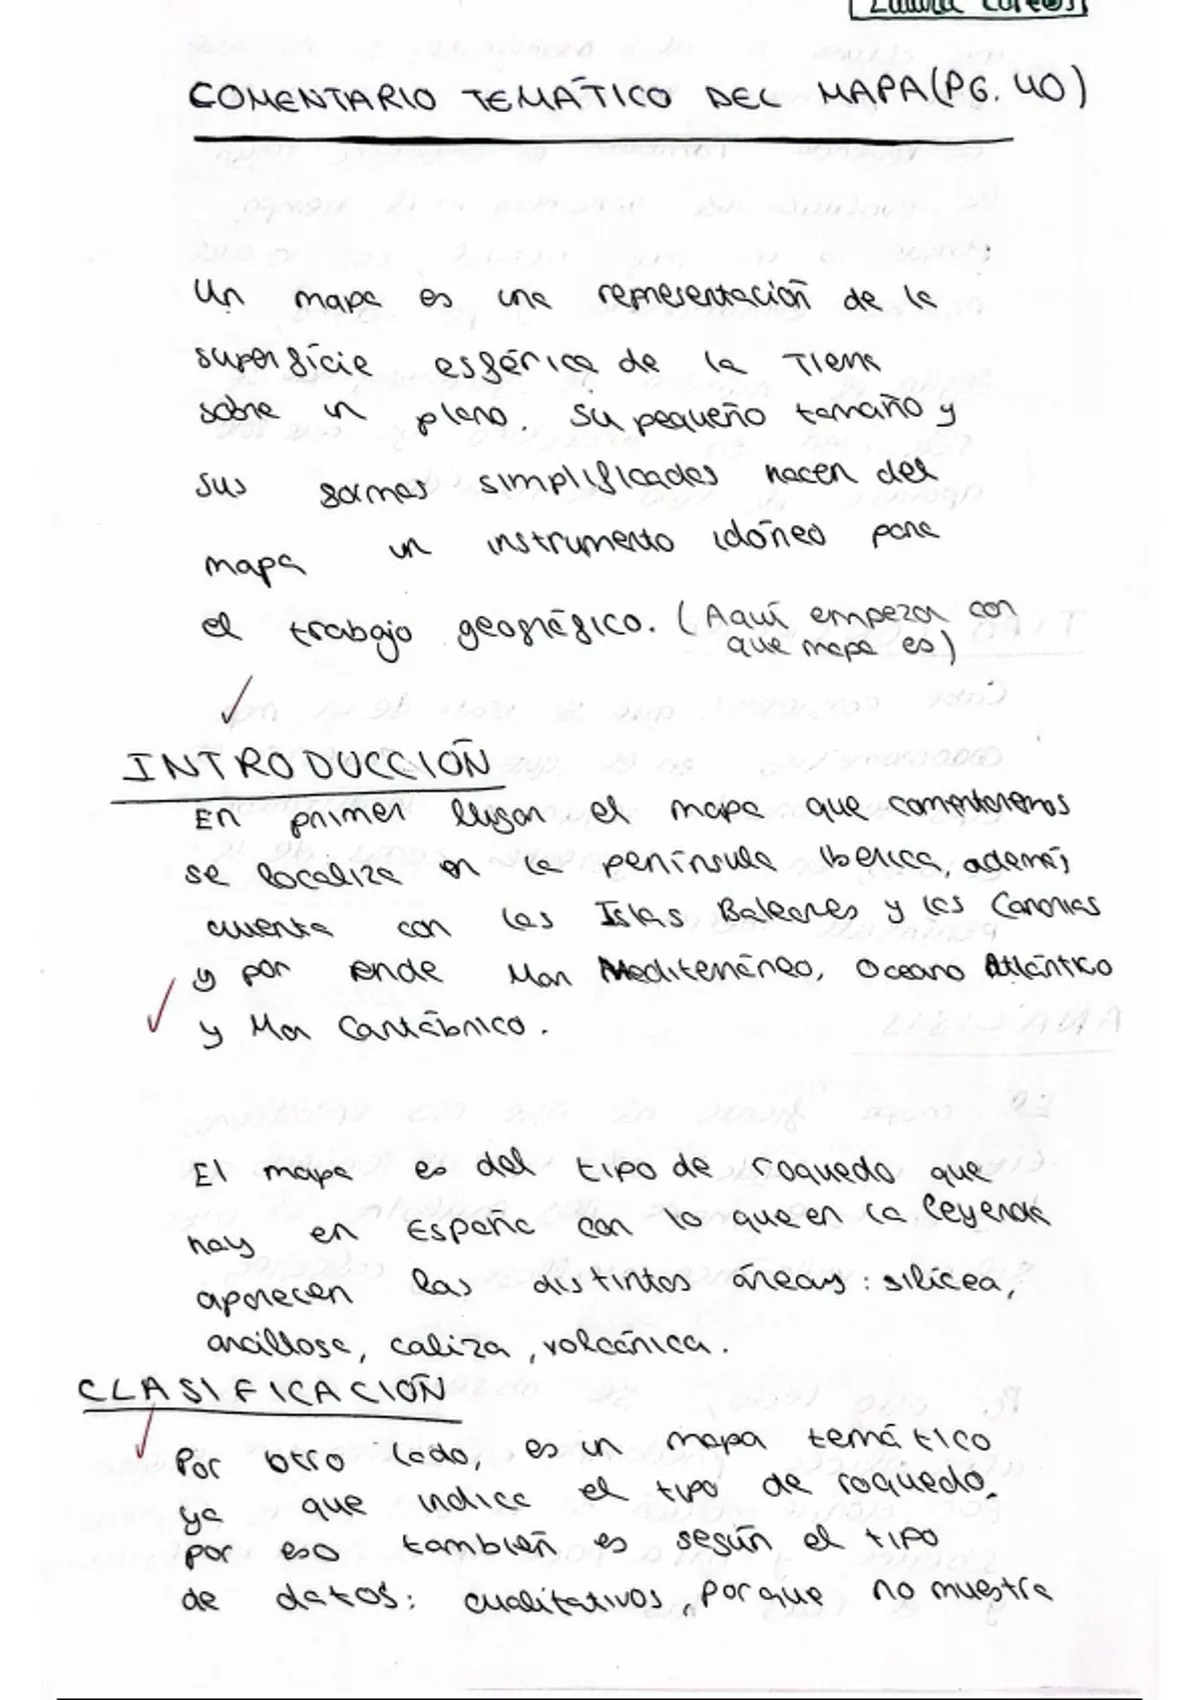 COMENTARIO TEMÁTICO DEL MAPA (PG. 40)
Un mapa es una representación de la
superficie esférica de la Tierra
sobre un plano. Su pequeño tamaño y
sus formas simplificadas hacen del
mapa un instrumento idóneo para
el trabajo geográfico. (Aquí empezar con
que mapa es)
INTRODUCCIÓN
En primer lugar el mapa que comentaremos
se localiza en la península Iberica, además
cuenta con las Islas Baleares y las Canarias
y por ende Mar Mediterráneo, Oceano Atlántico
y Mar Cantábrico.
El mapa es del tipo de roquedo que
hay en España con lo que en la leyenda
aparecen las distintas áreas: silícea,
arcillosa, caliza, volcánica.
CLASIFICACIÓN
Por otro lado, es un mapa temático
ya que indica el tipo de roquedo,
por eso también es según el tipo
de datos: cualitativos, porque no muestra